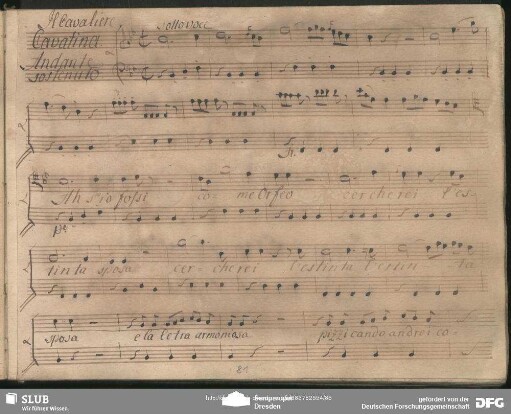 Il Cavaliere
sotto voce
Cavatina
Andante
sostenuto
Ah s'io fossi co- me Orfeo cercherei l'es-
tinta sposa cer- cherei l'estinta l'estin ta
sposa e la Cetra armoniosa pizzicando andrei co-
81
SLUB
Wir führen Wissen.
Dresden
gefördert von der
Deutschen Forschungsgemeinschaft
DFG